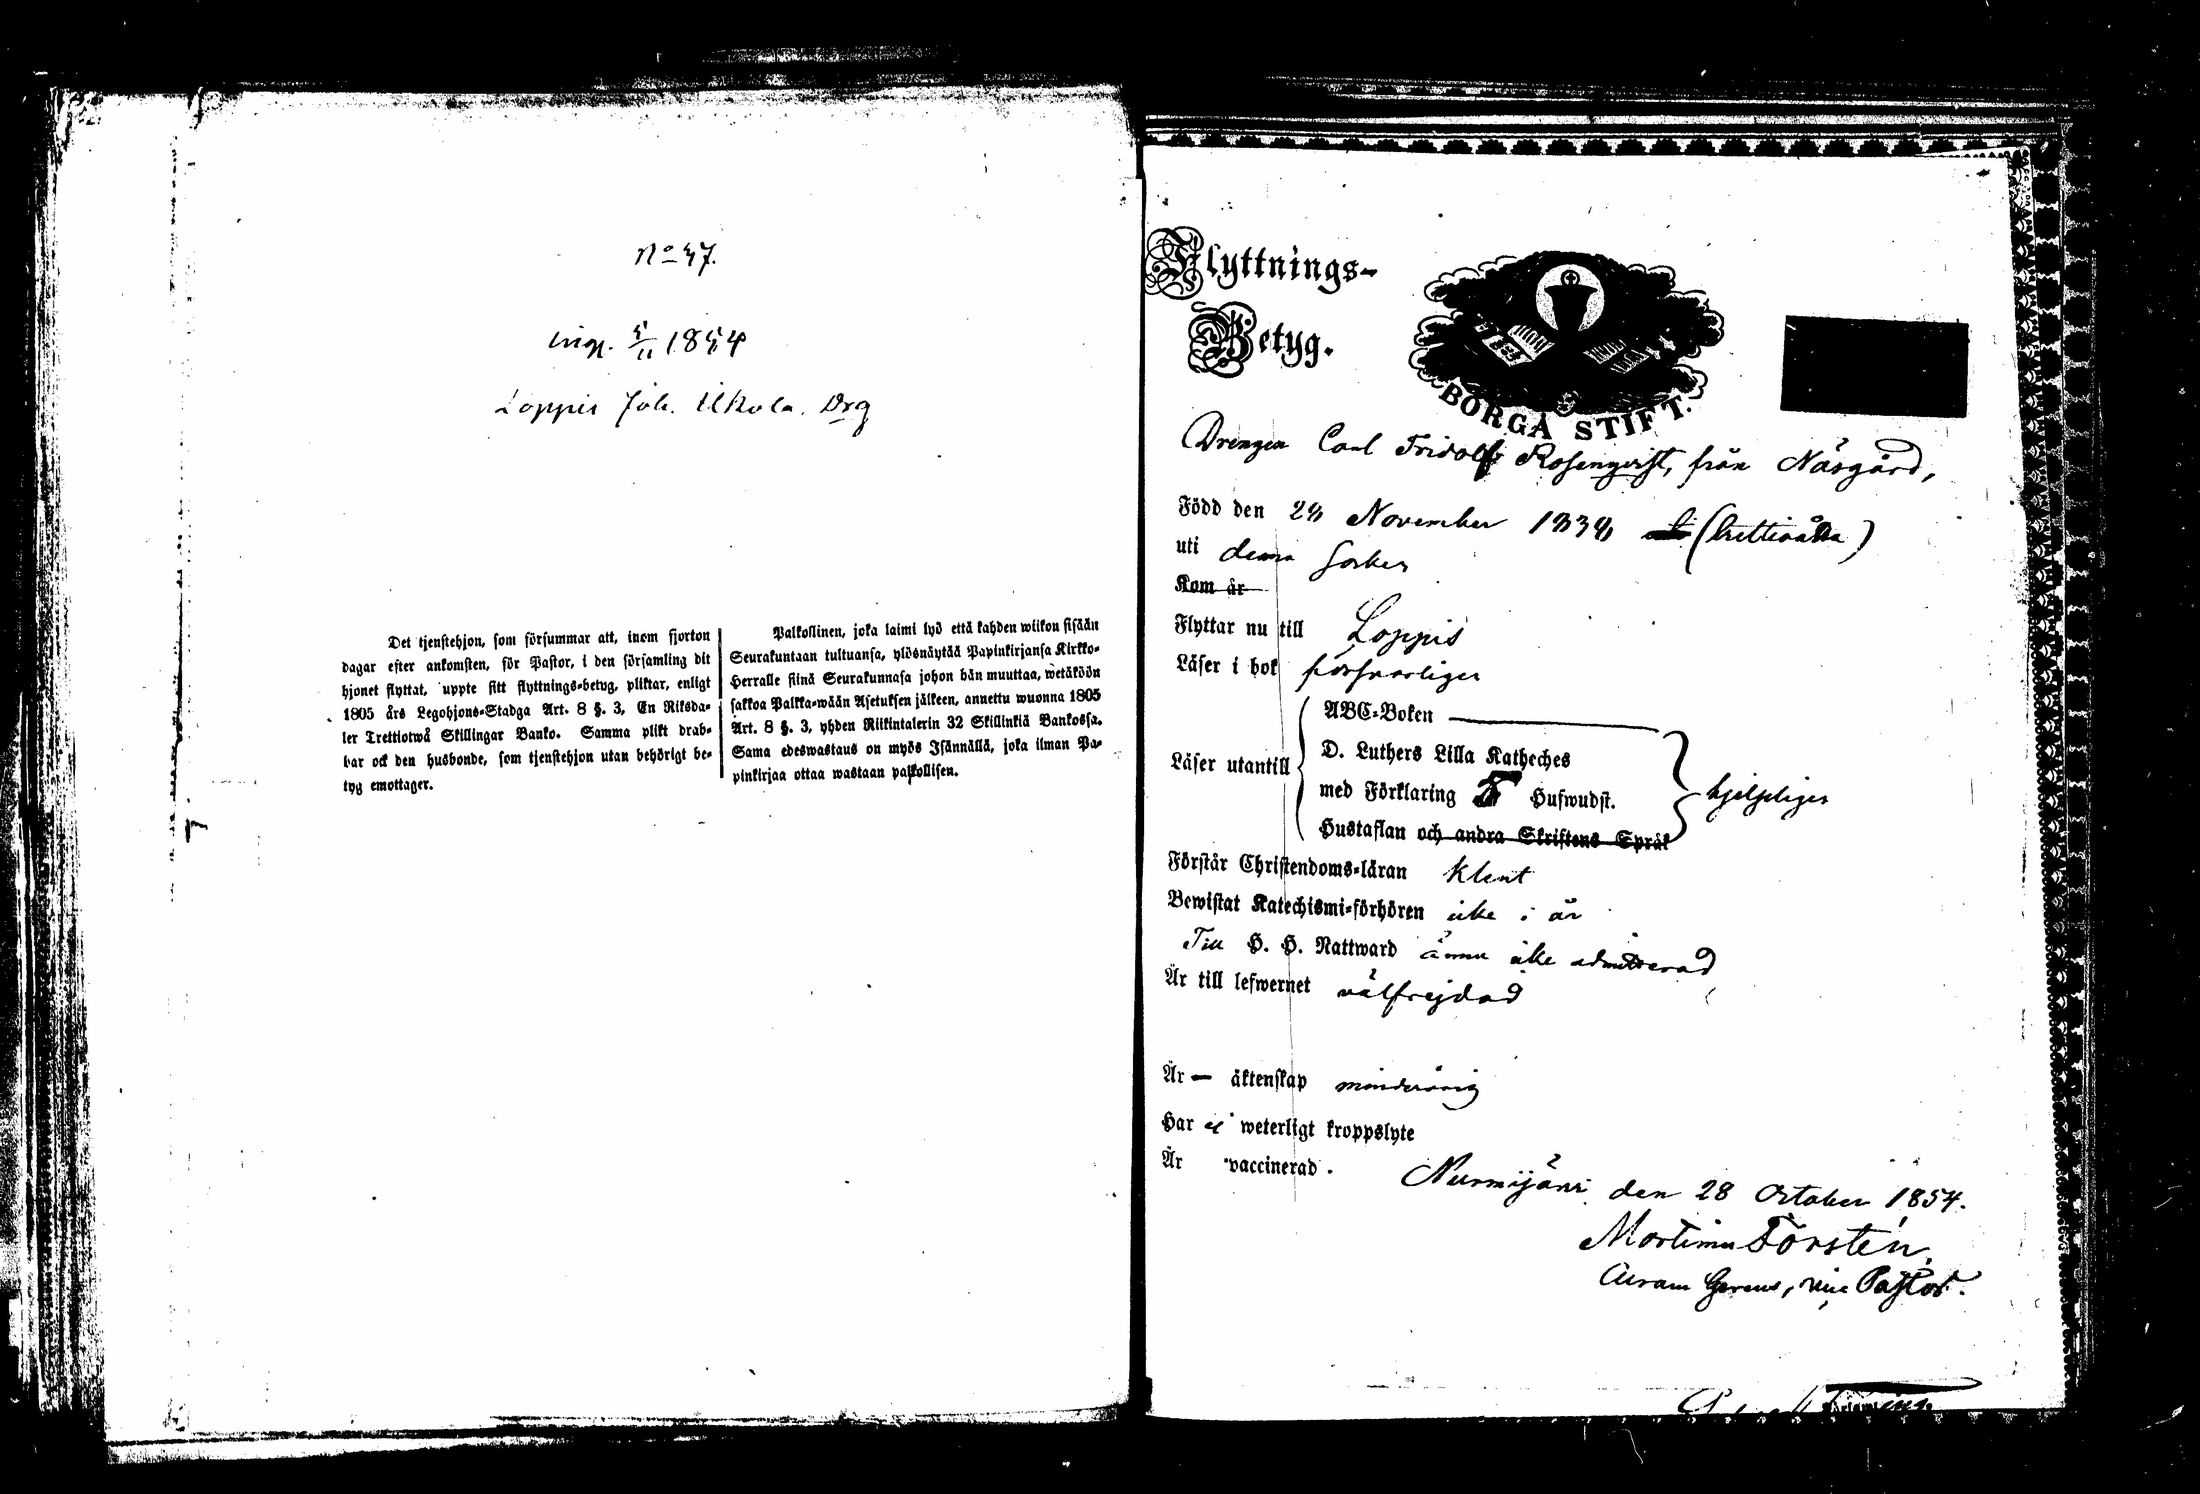 No 47.
ing. 5/11 1854
Loppis Joh. Ukola. Drg
Det tjenstehjon, som försummar att, inom fjorton
dagar efter ankomsten, för Pastor, i den församling dit
hjonet flyttat, uppte sitt flyttnings-betyg, pliktar, enligt
1805 års Legohjons-Stadga Art. 8 §. 3, En Riksda-
ler Trettiotwå Skillingar Banko. Samma plikt drab-
bar ock den husbonde, som tjenstehjon utan behörigt be-
tyg emottager.
Palkollinen, joka laimi lyö että kahden wiikon sisään
Seurakuntaan tultuansa, ylösnäytää Papinkirjansa Kirkko-
Herralle siinä Seurakunnasa johon hän muuttaa, wetäköön
sakkoa Palkka-wään Asetuksen jälkeen, annettu wuonna 1805
Art. 8 §. 3, yhden Riikintalerin 32 Skillinkiä Bankossa.
Sama edeswastaus on myös Isännällä, joka ilman Pa-
pinkirjaa ottaa wastaan palkollisen.
Flyttnings-
Betyg.
BORGÅ STIFT.
Drengen Carl Fridolf Rosenqvist, från Näsgård,
Född den 28 November 1838 (trettioåtta)
uti denna Socken
Kom år
Flyttar nu till Loppis
Läser i bok försvarligen
ABC-Boken
Läser utantill D. Luthers Lilla Katheches
med Förklaring Hufwudst. hjelpligen
Hustaflan och andra Skriftens Språk
Förstår Christendoms-läran klent
Bewistat Katechismi-förhören icke i år
Till H. H. Nattward ännu icke admitterad
Är till lefwernet välfrejdad
Är — äktenskap minderårig
Har ej weterligt kroppslyte
Är vaccinerad.
Nurmijärvi den 28 October 1854.
Mortimer Forstén,
vice Pastor.